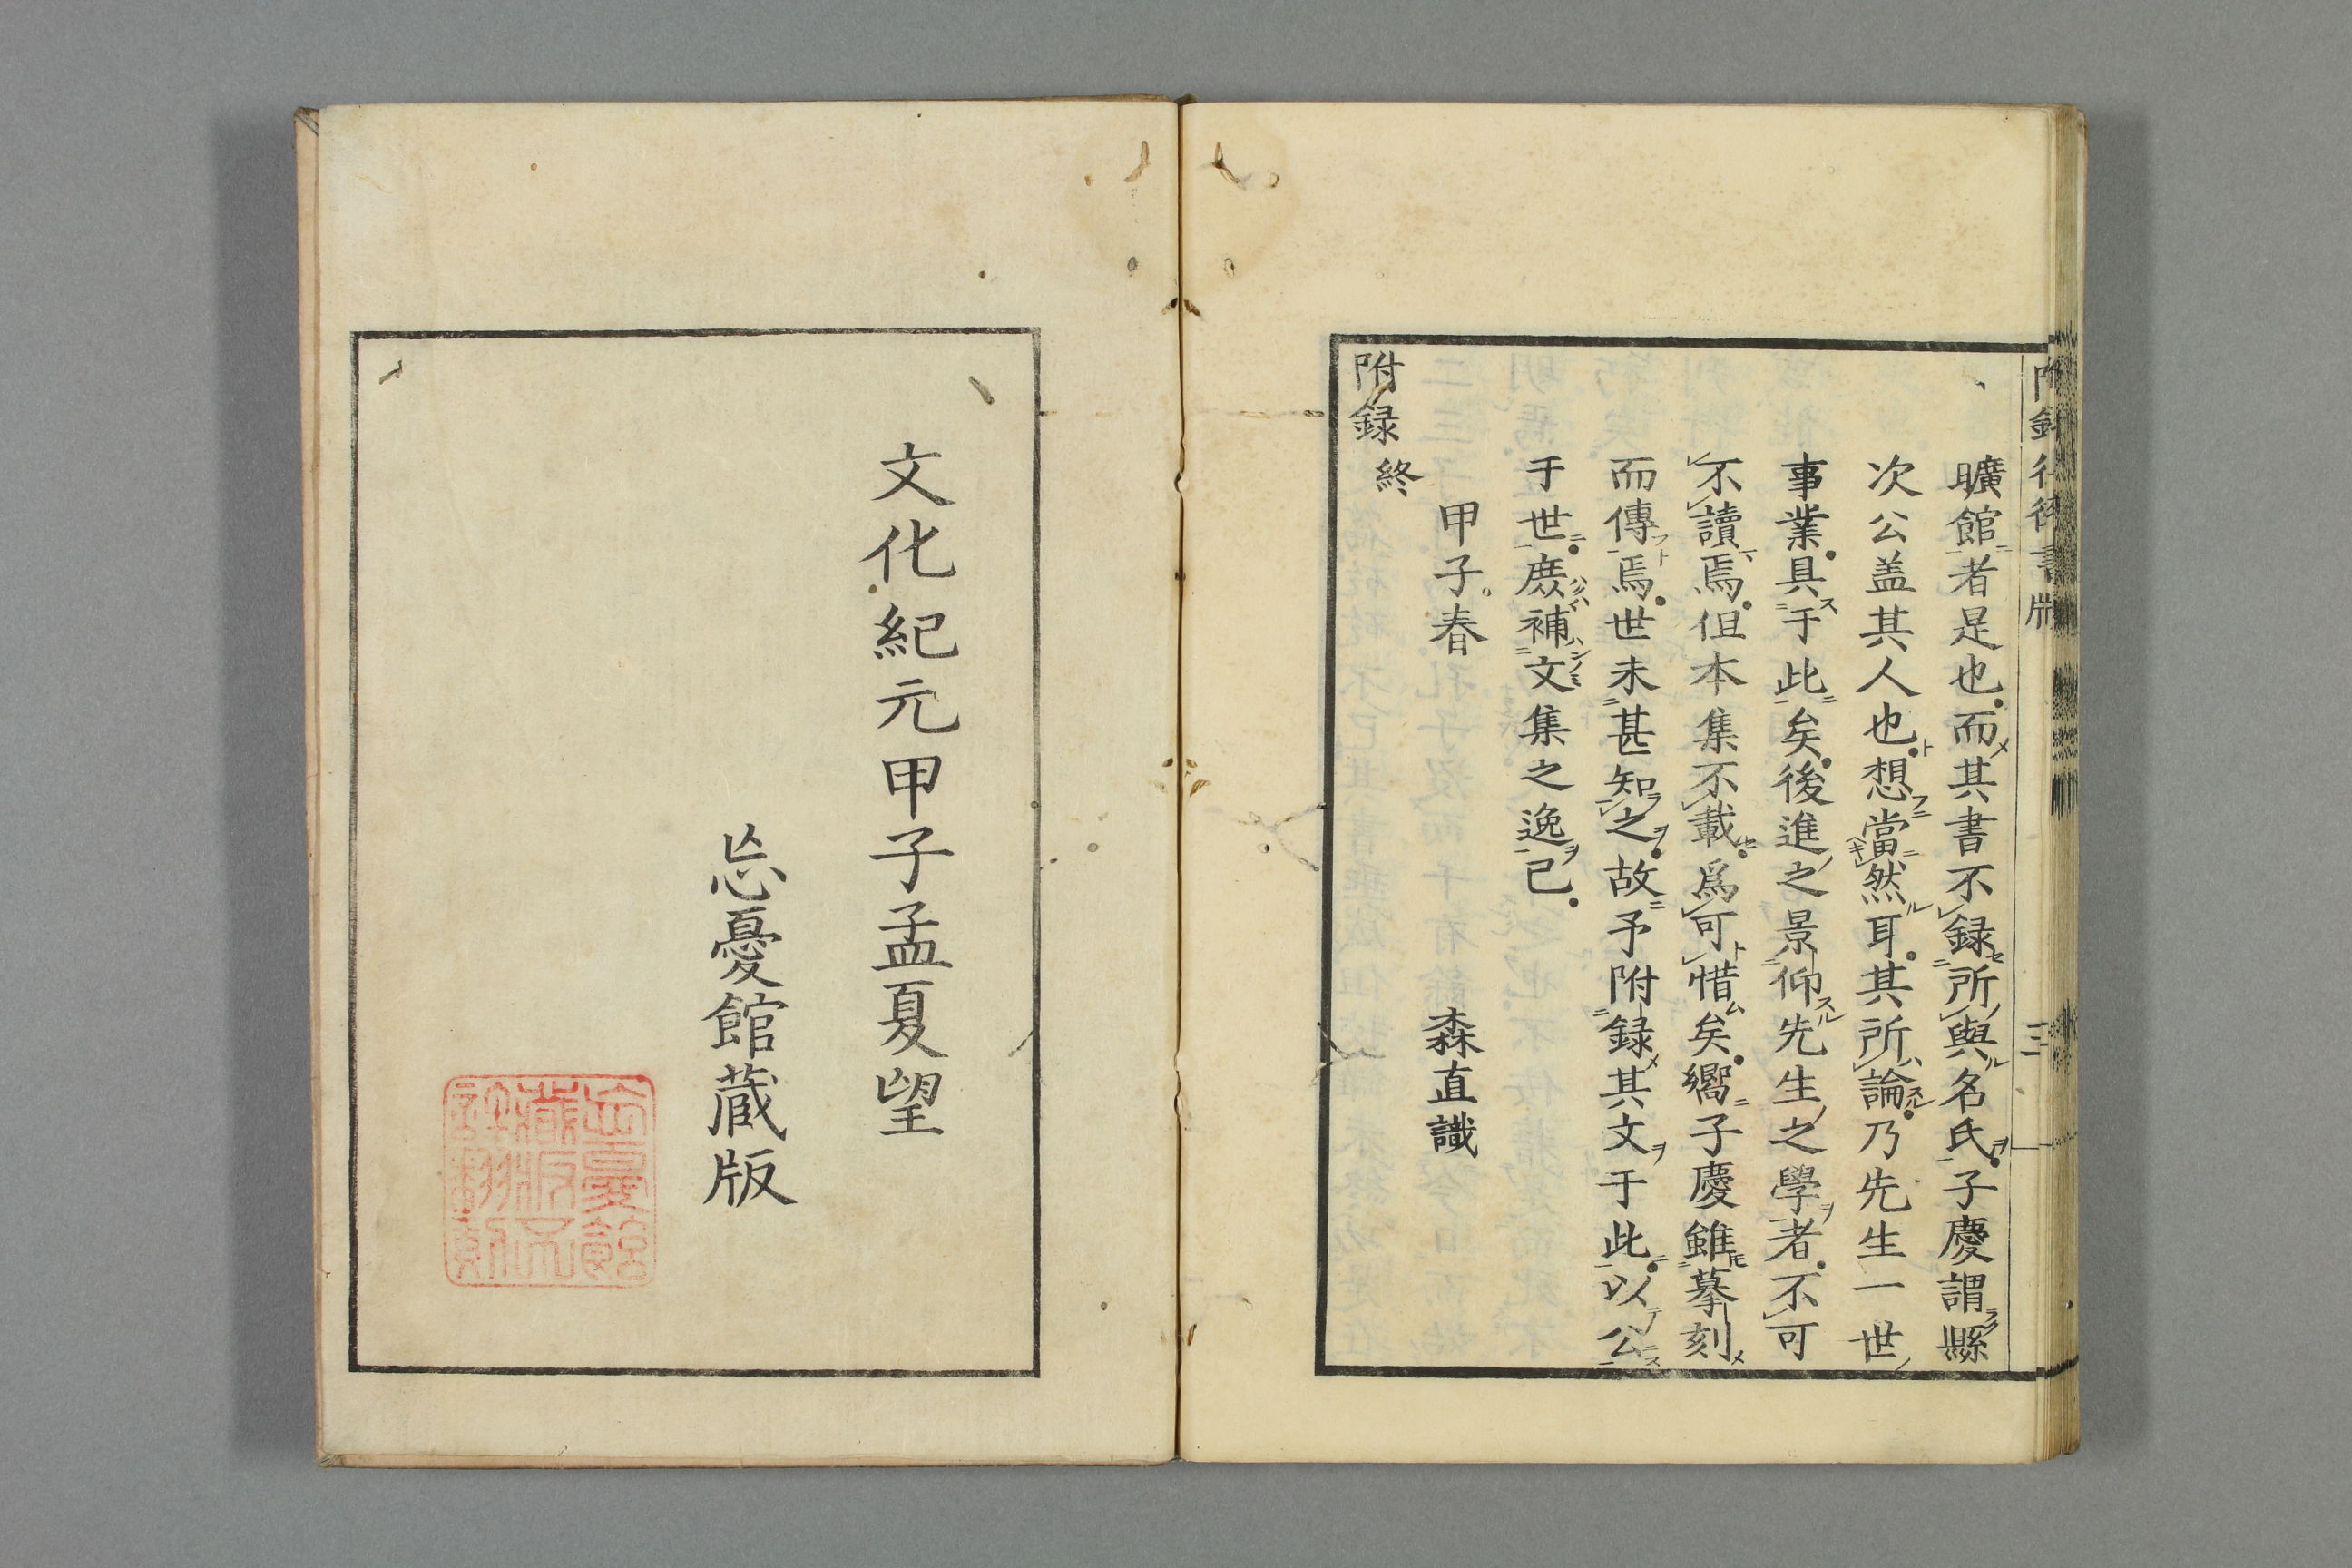 曠館者是也而其書不録所與名氏子慶謂縣
次公盖其人也想當然耳其所論乃先生一世
事業具于此矣後進之景仰先生之學者不可
不讀焉但本集不載爲可惜矣嚮子慶雖摹刻
而傳焉世未甚知之故予附録其文于此以公
于世庻補文集之逸已
甲子春 森直識
附録終
文化紀元甲子孟夏望
忘憂館蔵版